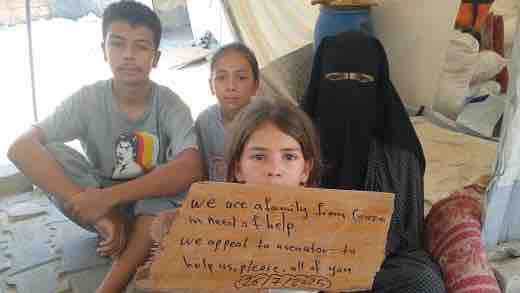 we are a family from Gaza
in need of help.
we appeal to asenator to
help us, please, all of you
26/7/2025